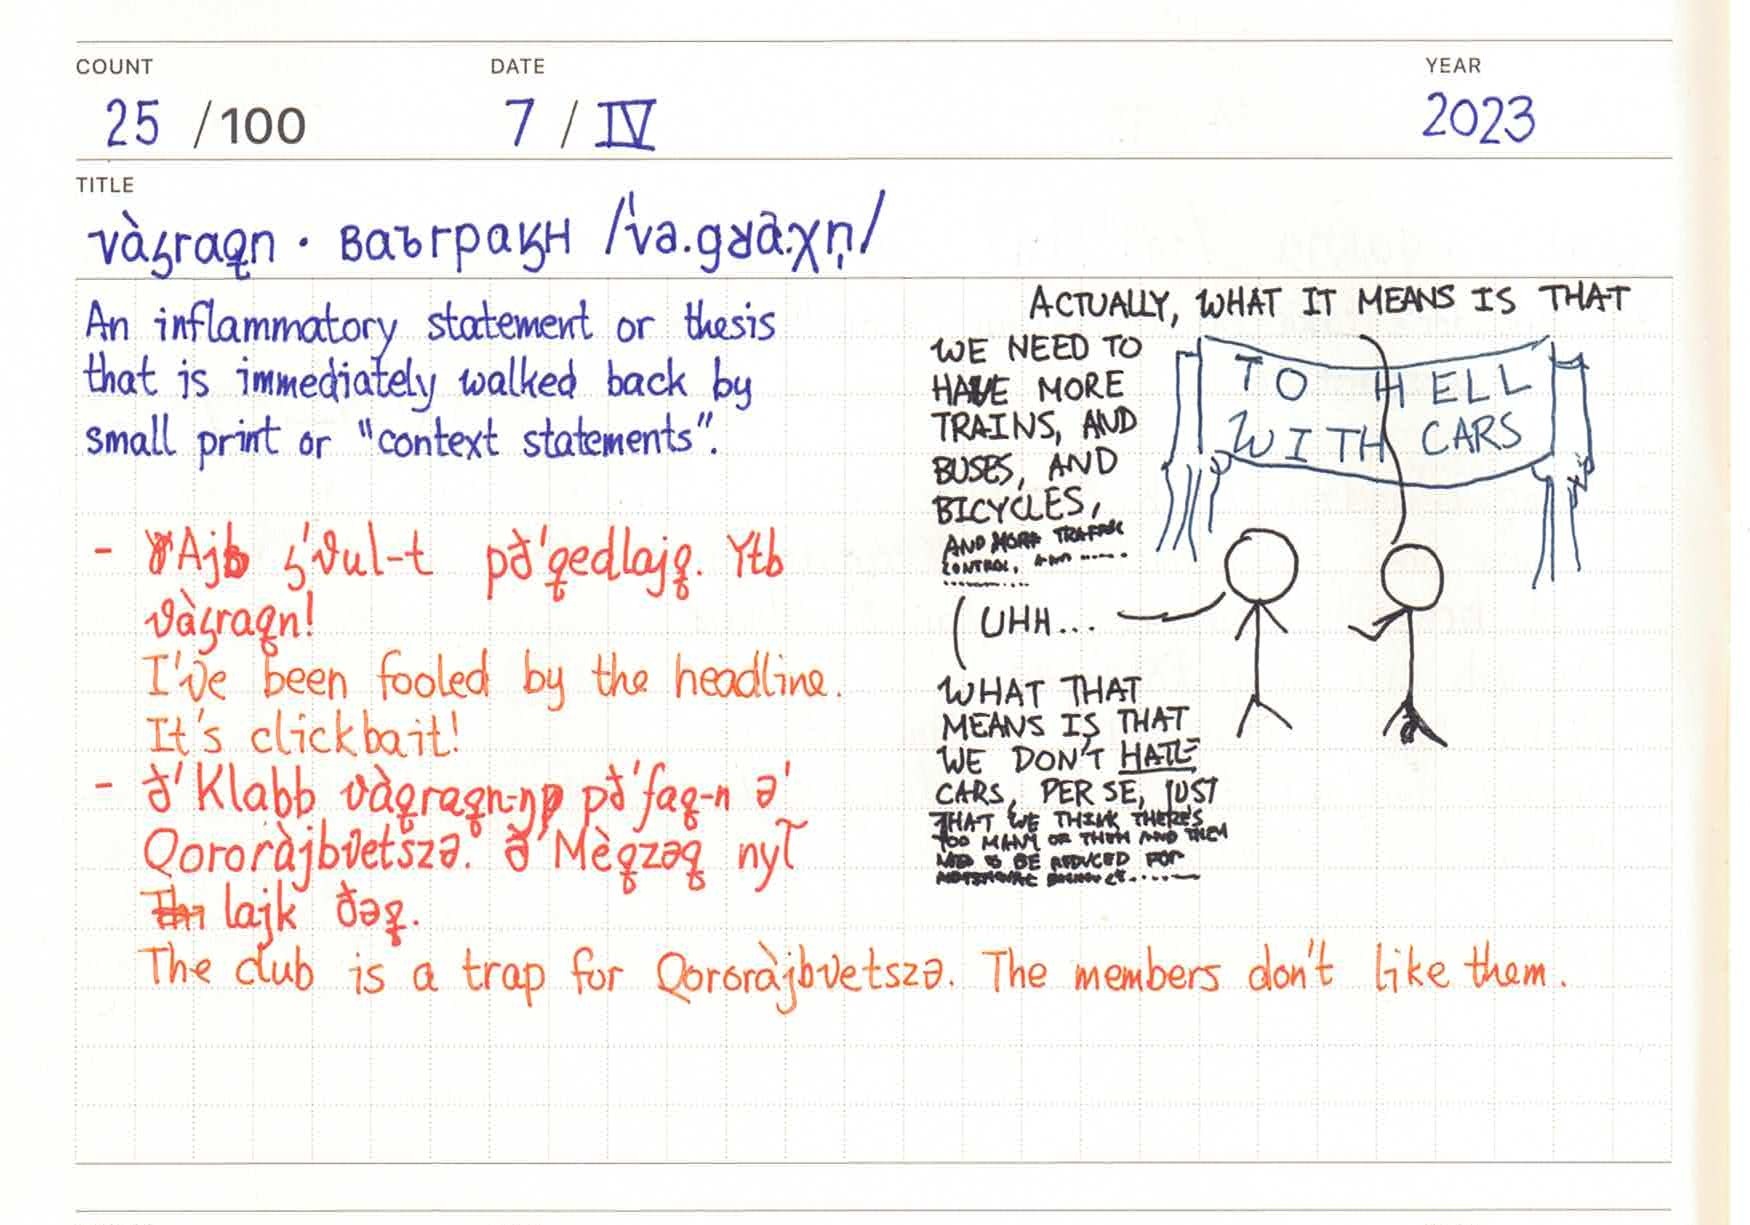 COUNT
DATE
YEAR
25 /100
7 / IV
2023
TITLE
vàꝣraqn · ваъграӄн /ˈva.gʁa.χn̩/
An inflammatory statement or thesis
that is immediately walked back by
small print or "context statements".
- Ajb ꝣ'ϑul-t pð'qedlajq. Ytb
ϑàꝣraqn!
I've been fooled by the headline.
It's clickbait!
- ð'Klabb ϑàqraqn-ŋp pð'faq-n ə'
Qororàjbϑetszə. ð'Mèqzəq
lajk ðəq.
The club is a trap for Qororàjbϑetszə. The members don't like them.
ACTUALLY, WHAT IT MEANS IS THAT
WE NEED TO
HAVE MORE
TRAINS, AND
BUSES, AND
BICYCLES,
AND MORE TRAFFIC
CONTROL, AND ......
TO HELL
WITH CARS
UHH...
WHAT THAT
MEANS IS THAT
WE DON'T HATE
CARS, PER SE, JUST
THAT WE THINK THERE'S
TOO MANY OF THEM AND THEY
BE REDUCED FOR